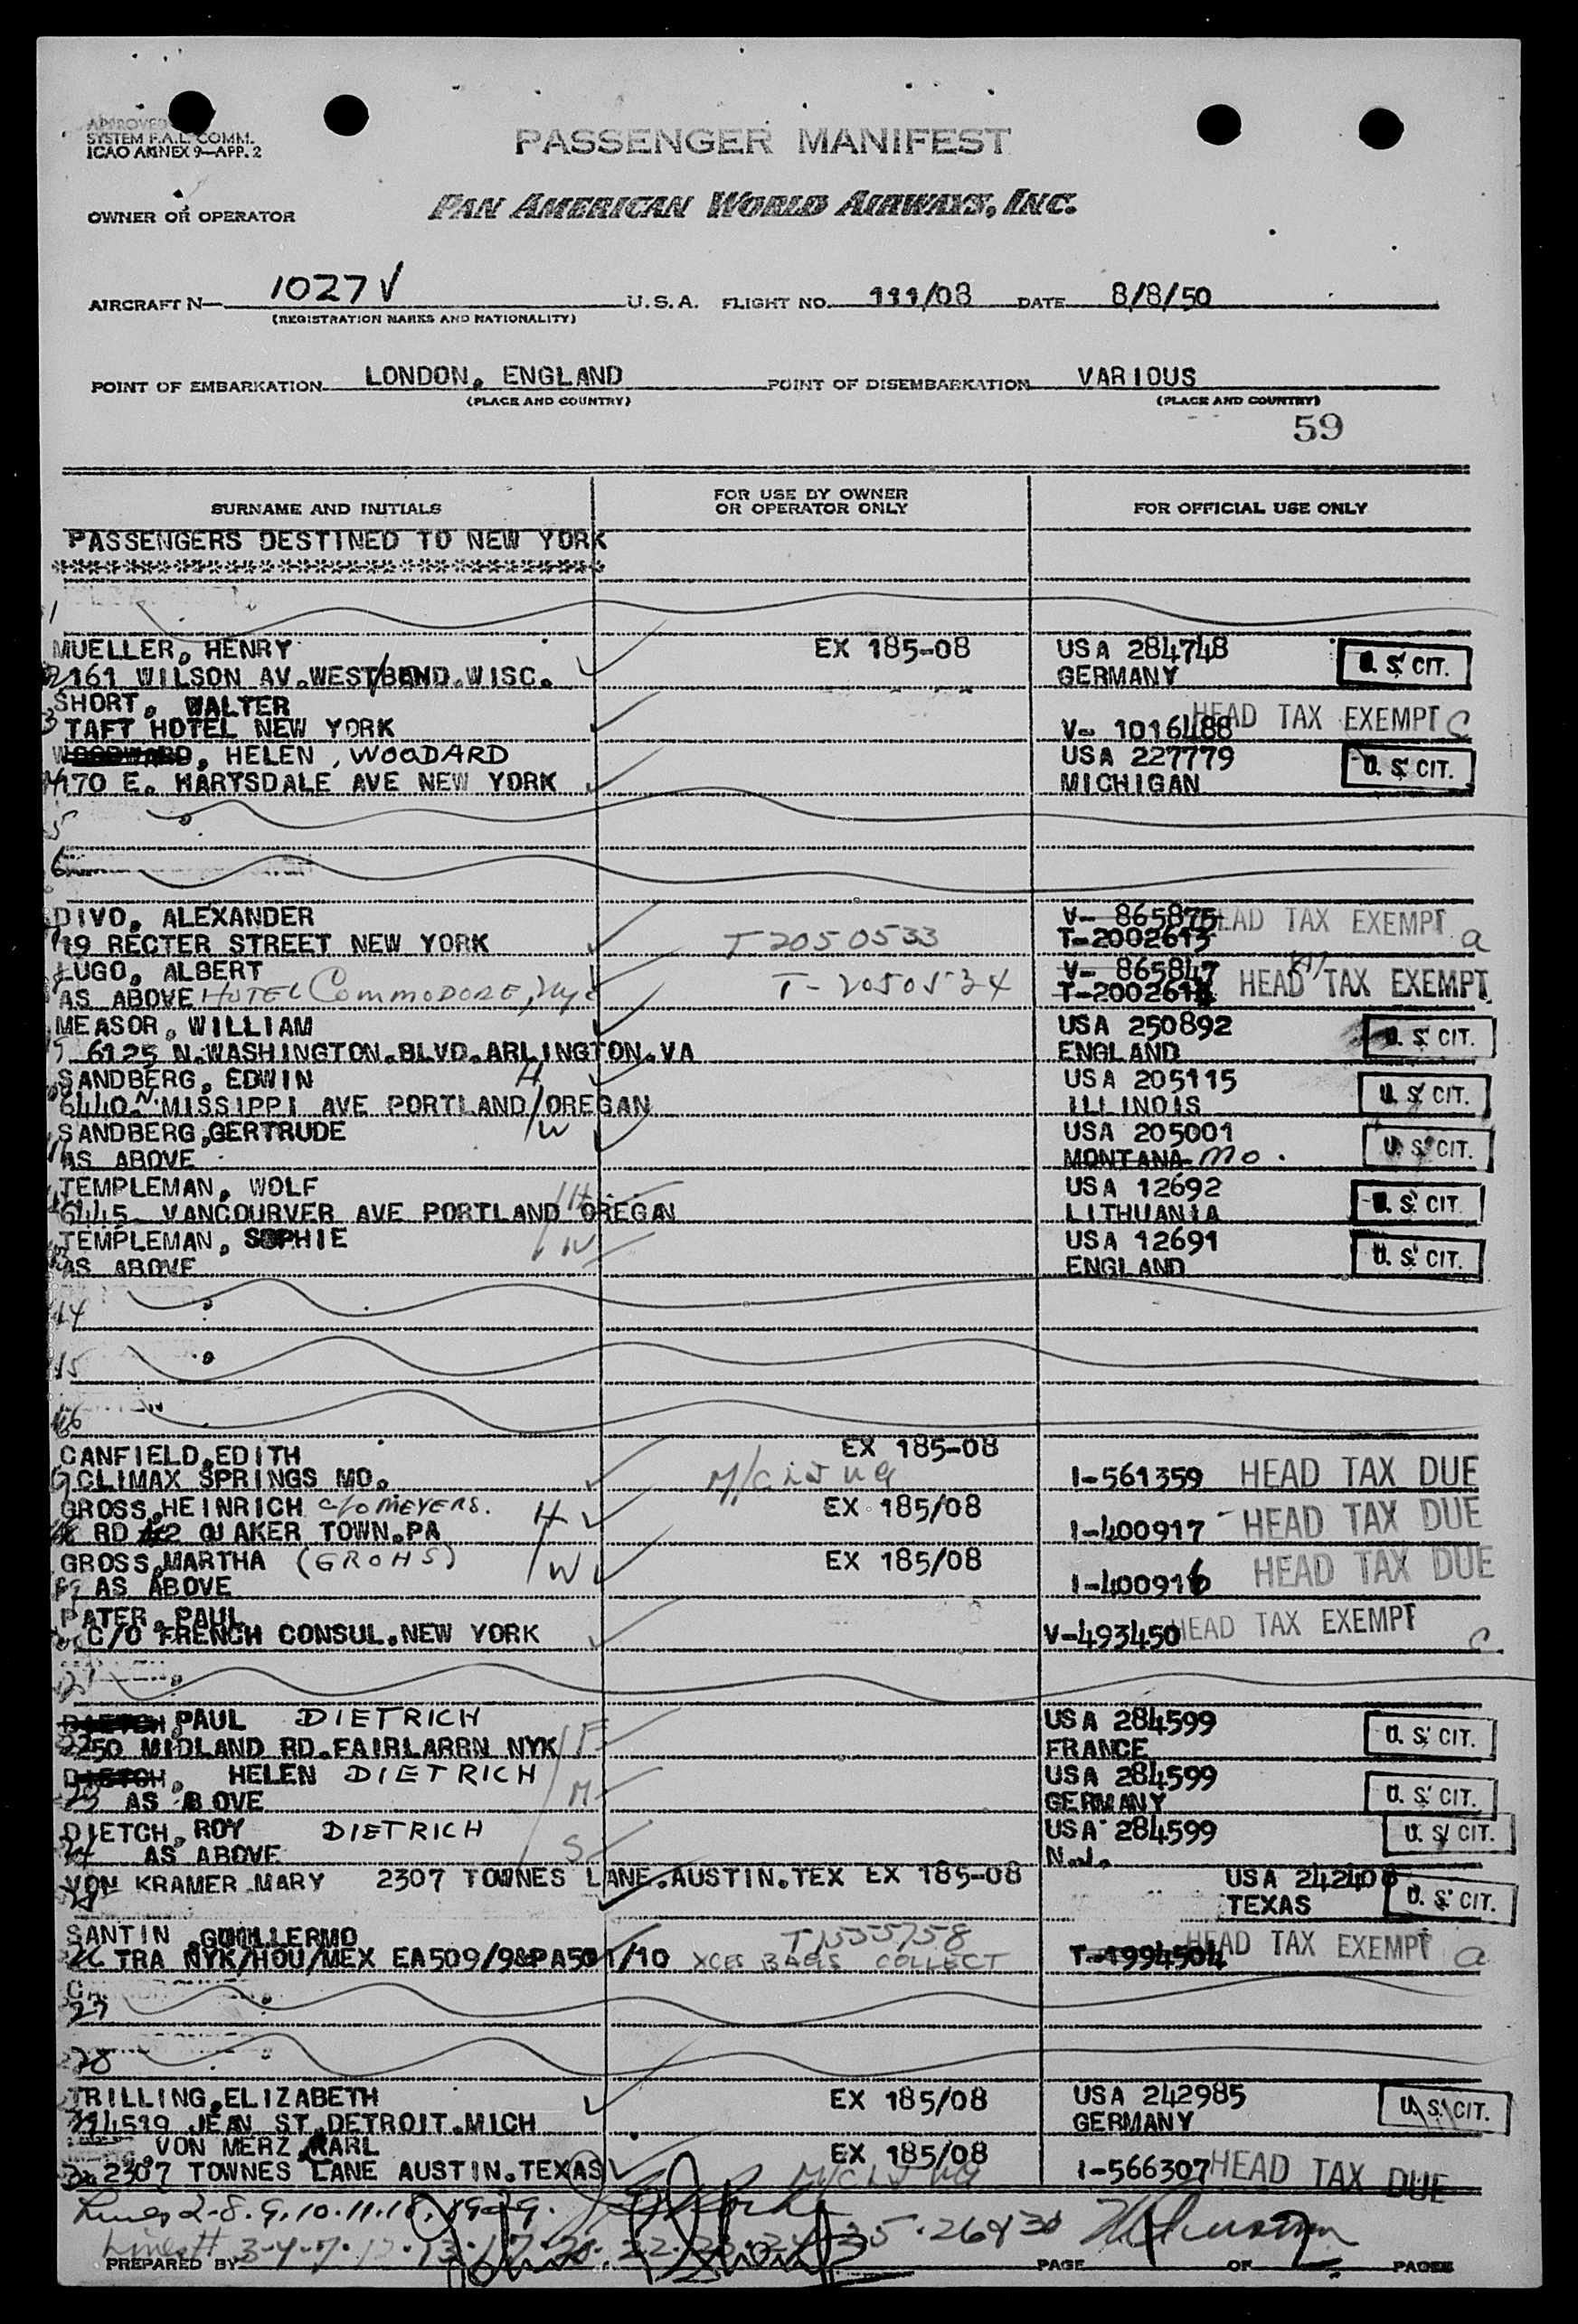 APPROVED
SYSTEM F.A.L. COMM.
ICAO ANNEX 9—APP. 2
PASSENGER MANIFEST
OWNER OR OPERATOR PAN AMERICAN WORLD AIRWAYS, INC.
AIRCRAFT N— 1027V U.S.A. FLIGHT NO. 111/08 DATE 8/8/50
(REGISTRATION MARKS AND NATIONALITY)
POINT OF EMBARKATION LONDON, ENGLAND POINT OF DISEMBARKATION VARIOUS
(PLACE AND COUNTRY) (PLACE AND COUNTRY)
59
SURNAME AND INITIALS FOR USE BY OWNER OR OPERATOR ONLY FOR OFFICIAL USE ONLY
PASSENGERS DESTINED TO NEW YORK
1
MUELLER, HENRY EX 185-08 USA 284748
2 161 WILSON AV.WEST/BEND.WISC. GERMANY U.S. CIT.
SHORT, WALTER HEAD TAX EXEMPT C
3 TAFT HOTEL NEW YORK V- 1016488
WOODWARD, HELEN, WOODARD USA 227779
4 170 E. HARTSDALE AVE NEW YORK MICHIGAN U.S. CIT.
5
6
DIVO, ALEXANDER V- 865875 HEAD TAX EXEMPT
7 19 RECTER STREET NEW YORK T 2050533 T-2002613 a
LUGO, ALBERT V- 865847 HEAD TAX EXEMPT
AS ABOVE HOTEL COMMODORE, nyc T-2050534 T-2002614
MEASOR, WILLIAM USA 250892 U.S. CIT.
9 6125 N.WASHINGTON.BLVD.ARLINGTON.VA ENGLAND
SANDBERG, EDWIN H USA 205115
10 6440 N. MISSIPPI AVE PORTLAND/OREGAN ILLINOIS U.S. CIT.
SANDBERG,GERTRUDE W USA 205001
11 AS ABOVE MONTANA mo. U.S. CIT.
TEMPLEMAN, WOLF H USA 12692
6445 VANCOURVER AVE PORTLAND OREGAN LITHUANIA U.S. CIT.
TEMPLEMAN, SOPHIE W USA 12691
AS ABOVE ENGLAND U.S. CIT.
14
15
16
CANFIELD,EDITH EX 185-08
CLIMAX SPRINGS MO. I-561359 HEAD TAX DUE
GROSS,HEINRICH c/o MEYERS. H EX 185/08
RD #2 QUAKER TOWN.PA I-400917 HEAD TAX DUE
GROSS,MARTHA (GROHS) W EX 185/08
19 AS ABOVE I-400916 HEAD TAX DUE
PATER, PAUL
C/O FRENCH CONSUL.NEW YORK V-493450 HEAD TAX EXEMPT C
21
DIETCH,PAUL DIETRICH USA 284599
2250 MIDLAND RD.FAIRLARRN NYK F FRANCE U.S. CIT.
DIETCH, HELEN DIETRICH USA 284599
23 AS ABOVE M GERMANY U.S. CIT.
DIETCH, ROY DIETRICH USA 284599 U.S. CIT.
24 AS ABOVE S N.J.
VON KRAMER MARY 2307 TOWNES LANE.AUSTIN.TEX EX 185-08 USA 242408
TEXAS U.S. CIT.
SANTIN ,GUILLERMO T1555758 HEAD TAX EXEMPT
26 TRA NYK/HOU/MEX EA509/9&PA501/10 XCES BAGS COLLECT T-1994504 a
27
28
TRILLING,ELIZABETH EX 185/08 USA 242985
14519 JEAN ST.DETROIT.MICH GERMANY U.S. CIT.
VON MERZ KARL EX 185/08
2307 TOWNES LANE AUSTIN.TEXAS I-566307 HEAD TAX DUE
Lines 2.8.9.10.11.18.19.29.
PREPARED BY PAGE OF PAGES